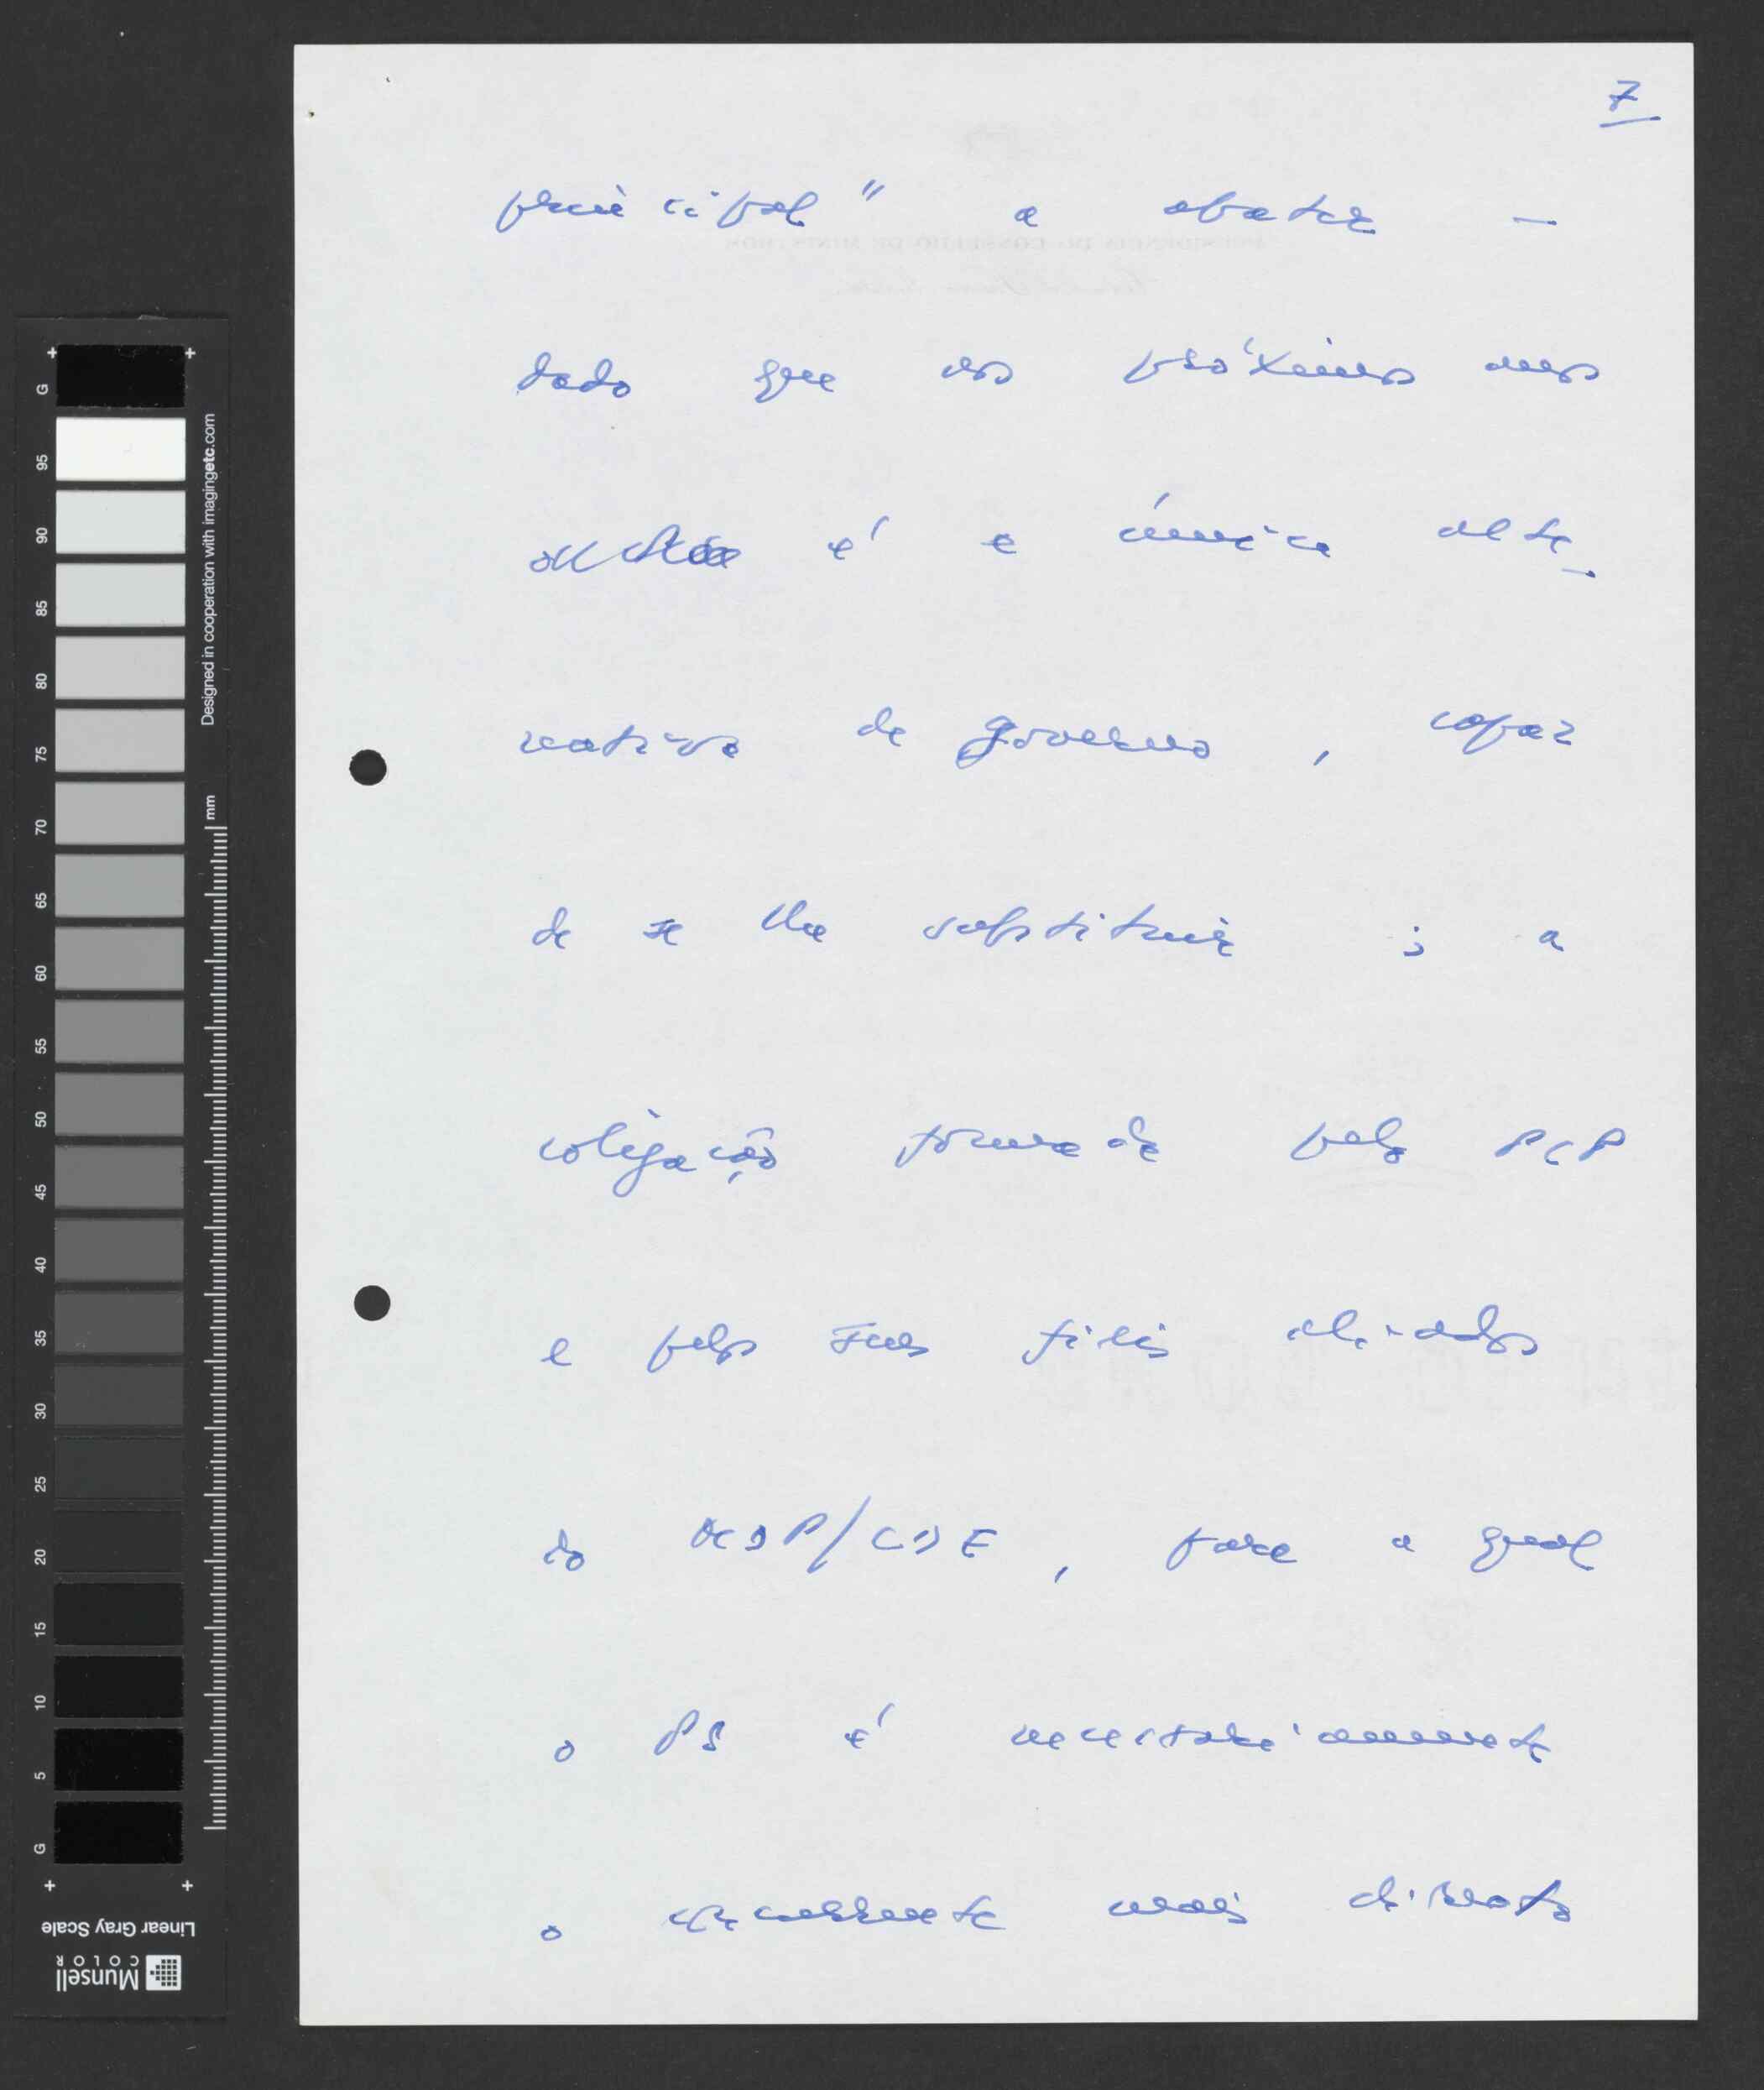 7
principal" a abater —
dado que nos próximos anos
é a única alte-
nativa de governo, capaz
de se lhe substituir; a
coligação formada pelo PCP
e pelos seus fiéis aliados
do MDP/CDE, para a qual
o PS é necessariamente
o concorrente mais directo
G
95
90
85
80
75
70
65
60
55
50
45
40
35
30
25
20
15
10
5
G
Designed in cooperation with imagingetc.com
mm
Linear Gray Scale
Munsell
COLOR